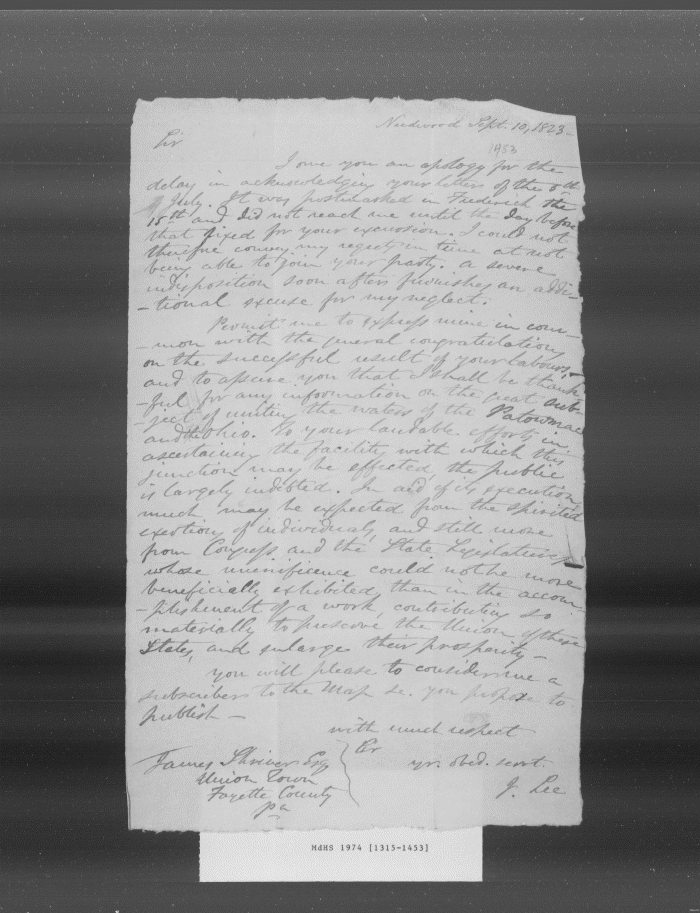 Needwood Sept. 10, 1823.
1453
Sir
I owe you an apology for the
delay in acknowledging your letters of the 6th
of July. It was postmarked in Frederick the
15th and did not reach me until the day before
that fixed for your excursion. I could not
therefore convey my regret in time at not
being able to join your party. A severe
indisposition soon after furnishes an addi-
-tional excuse for my neglect.
Permit me to express mine in com-
-mon with the general congratulations
on the successful result of your labours,
and to assure you that I shall be thank
-ful for any information on the great sub-
-ject of uniting the waters of the Patowmac
and the Ohio. To your laudable efforts in
ascertaining the facility with which this
junction may be effected the public
is largely indebted. In aid of its execution
much may be expected from the spirited
exertion of individuals, and still more
from Congress and the State Legislatures
whose munificence could not be more
beneficially exhibited, than in the accom-
-plishment of a work, contributing so
materially to preserve the Union of these
States, and enlarge their prosperity —
You will please to consider me a
subscriber to the Map &c. you propose to
publish —
with much respect
Sir
yr. obed. servt.
J. Lee
James Shriver Esq
Union Town
Fayette County
Pa
MdHS 1974 [1315-1453]